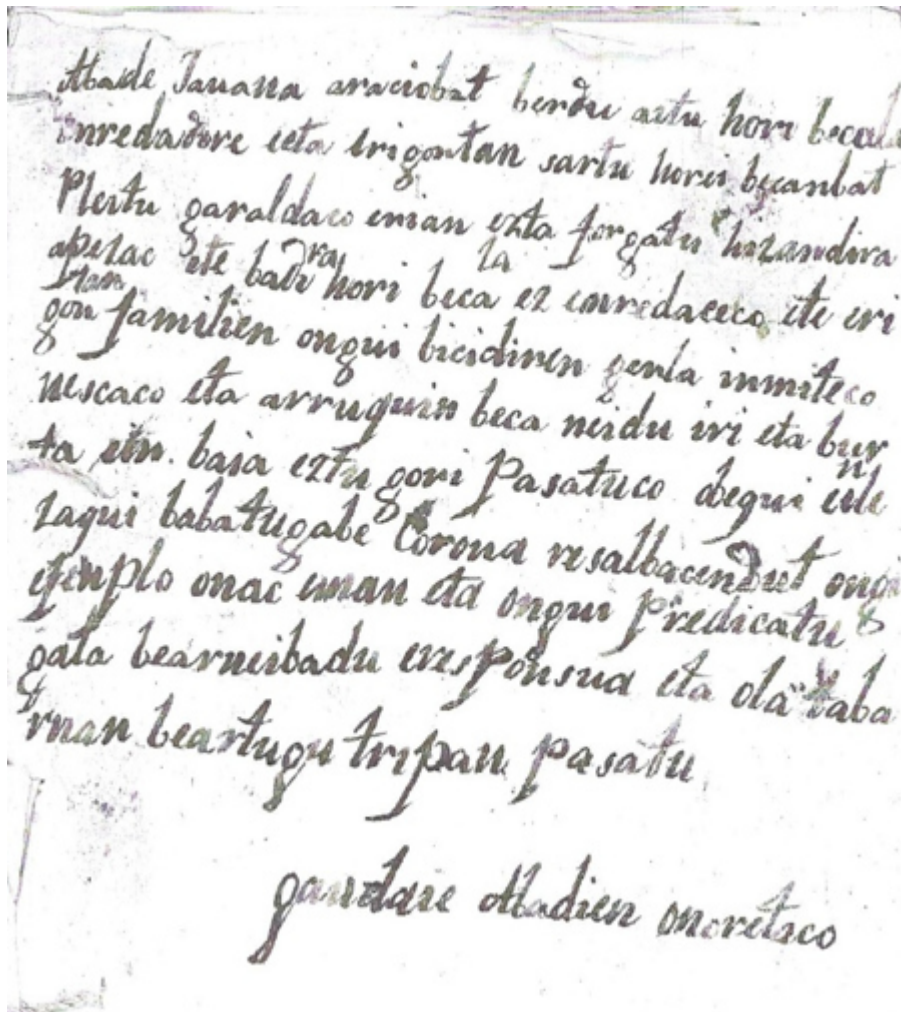 Abade Jauana araciobat berdu artu hori becala
enredadore eeta erigoetan sartu horei becanbat
Pleitu garaldaco eman ezta forgatu hizandira
apezac ete badira hori beca la ez enredaceco ete eri
goietan familien ongui bicidiren genla inmiteco
nescaco eta arruquin beca neidu iri eta bur
ta etn. baia eztu gori Pasatuco degui
zaqui babatugabe Corona resalbacendut ongi
ejenplo onac eman eta ongui Predicatu
gata bearneibadu eresponsua eta ola taba
rnan beartugu tripan pasatu
gaudaie Abadien onoretaco